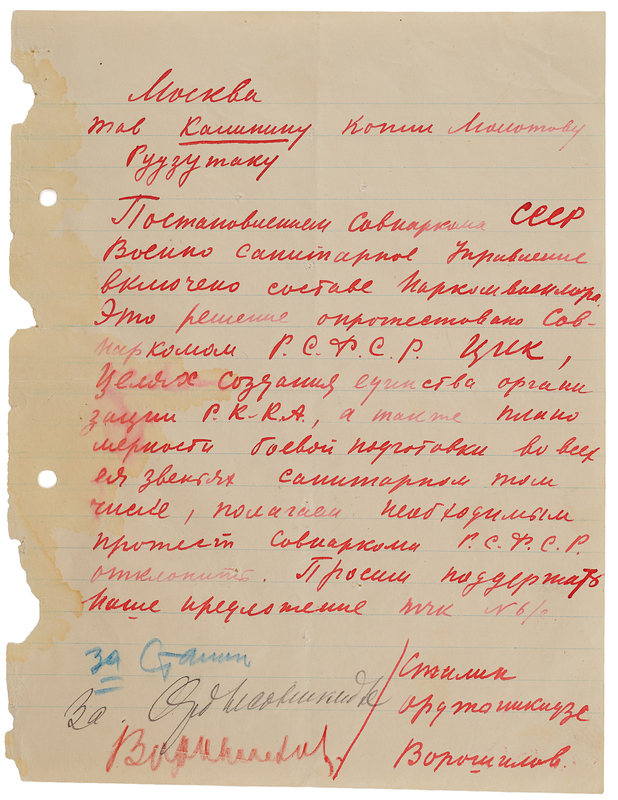 Москва
тов Калинину Копии Молотову
Рудзутаку
Постановлением Совнаркома СССР
Военно санитарное Управление
включено составе Наркомвоенмора.
Это решение опротестовано Сов-
наркомом Р.С.Ф.С.Р. ЦИК,
Целях создания единства органи
зации Р.К-К.А., а также плано
мерности боевой подготовки во всех
ея звеньях санитарном том
числе, полагаем необходимым
протест Совнаркома Р.С.Ф.С.Р.
отклонить. Просим поддержать
наше предложение тчк
за Сталин
За. Орджоникидзе
Ворошилов.
Сталин
Орджоникидзе
Ворошилов.